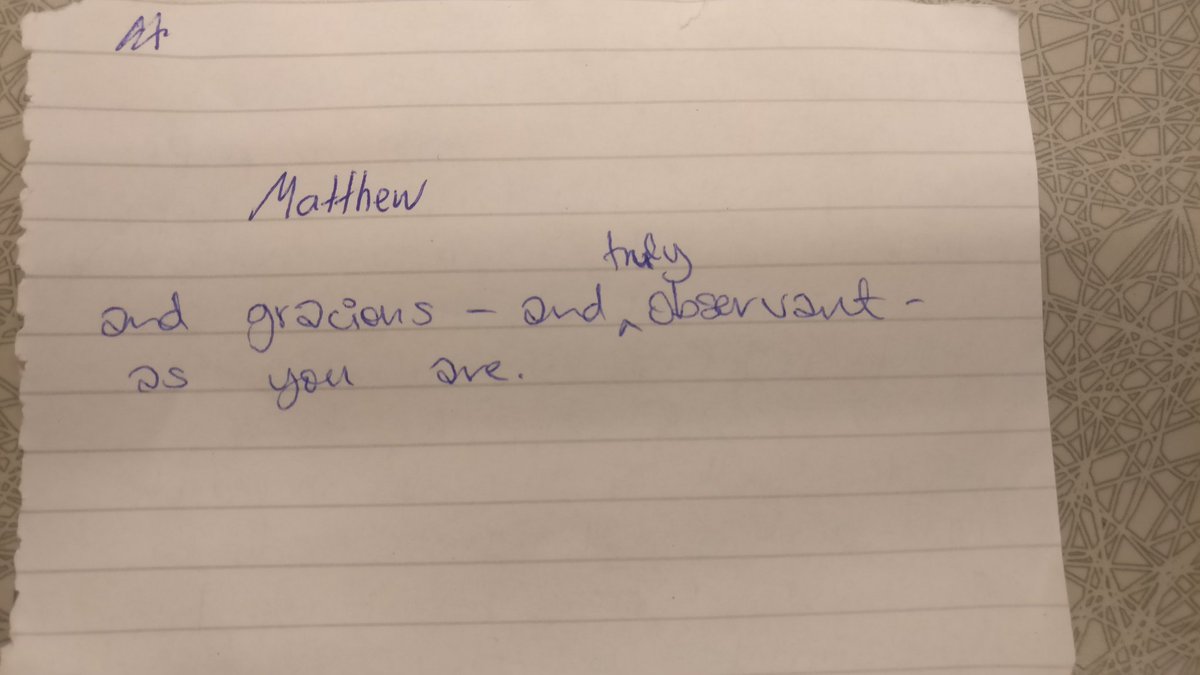 At
Matthew
truly
and gracious - and ^ observant -
as you are.